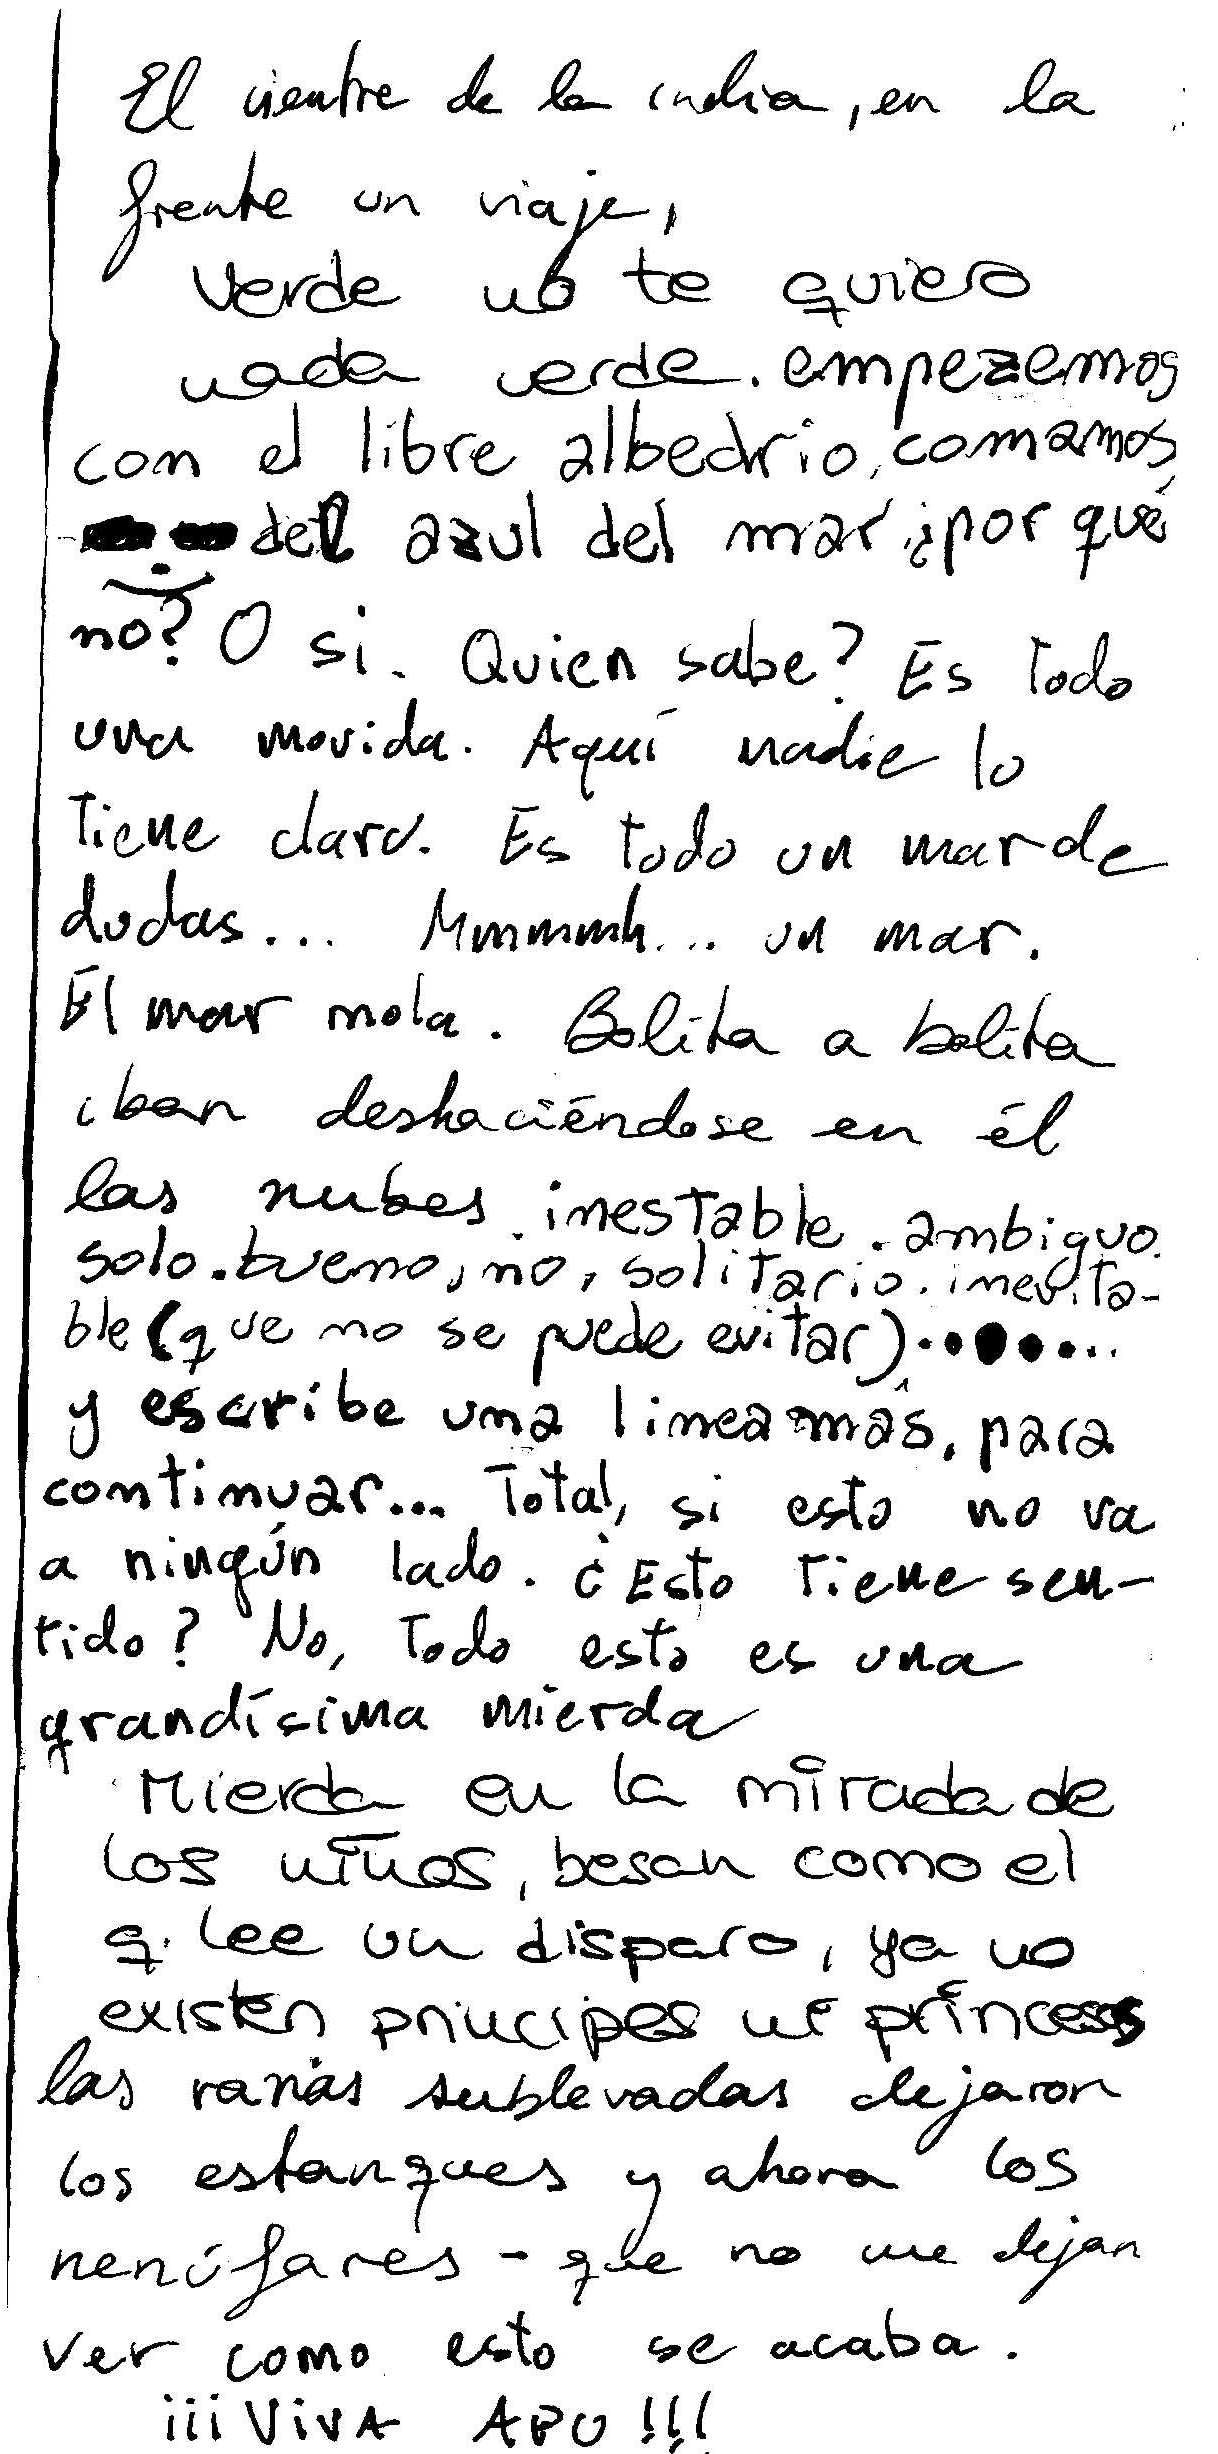 El vientre de la india, en la
frente un viaje,
verde no te quiero
nada verde. empezemos
con el libre albedrio, comamos
del azul del mar ¿por qué
no? O si. Quien sabe? Es todo
una movida. Aquí nadie lo
tiene claro. Es todo un mar de
dudas... Mmmmmh... un mar.
El mar mola. Bolita a bolita
iban deshaciéndose en él
las nubes. inestable. ambiguo.
solo. bueno, no, solitario. inevita-
ble (que no se puede evitar)........
y escribe una linea más, para
continuar... Total, si esto no va
a ningún lado. ¿Esto tiene sen-
tido? No, todo esto es una
grandísima mierda
Mierda en la mirada de
los niños, besan como el
q. lee un disparo, ya no
existen principes ni princesas
las ranas sublevadas dejaron
los estanques y ahora los
nenúfares - que no me dejan
ver como esto se acaba.
¡¡¡VIVA APU!!!